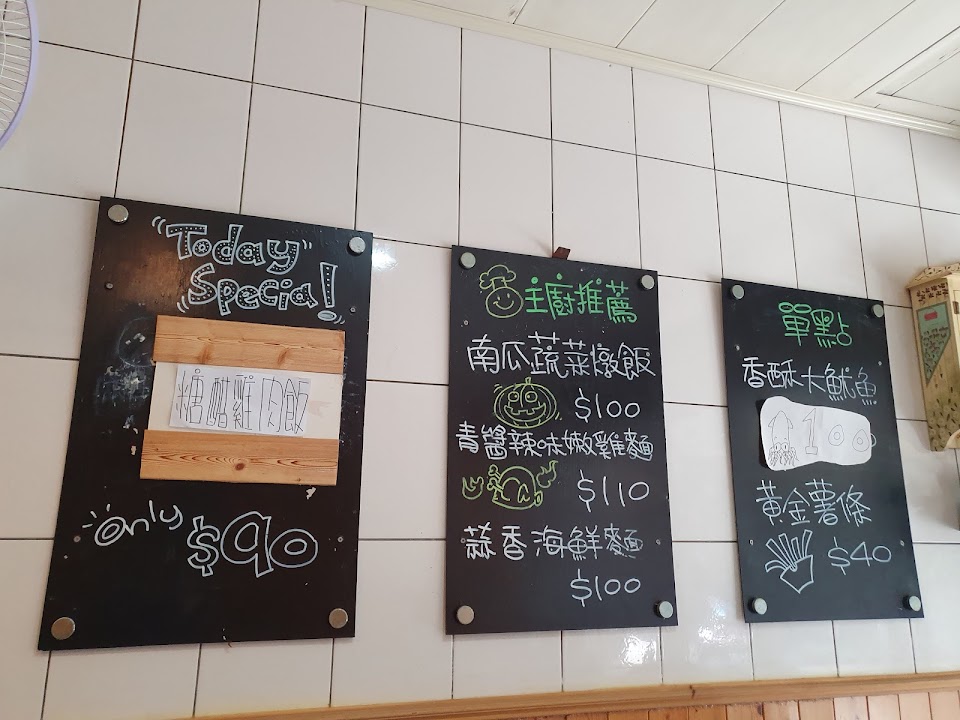 Today
Special!
糖醋雞肉飯
only $90
主廚推薦
南瓜蔬菜燉飯
$100
青醬辣味嫩雞麵
$110
蒜香海鮮麵
$100
單點
香酥大魷魚
100
黃金薯條
$40